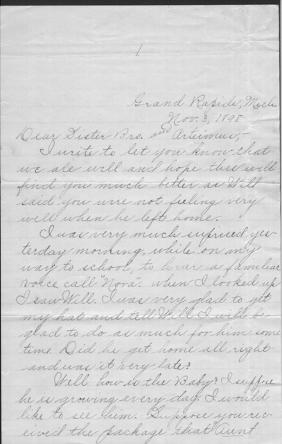 1
Grand Rapids, Mich
Nov. 3, 1898
Dear Sister Bro. and Arteimus,-
I write to let you know that
we are well and hope this will
find you much better as Will
said you were not feeling very
well when he left home.
I was very much suprised, yes-
terday morning, while on my
way to school, to hear a familiar
voice call "Nora". when I looked up
I saw Will. I was very glad to get
my hat and tell Will I will be
glad to do as much for him some
time. Did he get home all right
and was it very late?
Well how is the Baby? I suppose
he is growing every day. I would
like to see him. Suppose you rec-
eived the package that Aunt